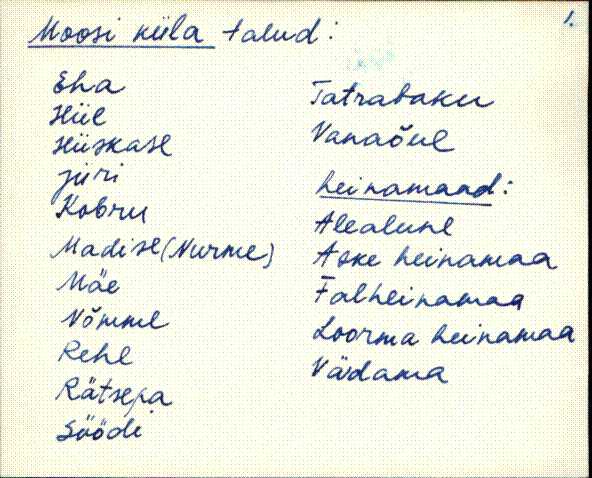 1.
Moosi küla talud:
Eha
Hüe
Hüskase
Jüri
Kobru
Madise (Nurme)
Mäe
Nõmme
Rehe
Rätsepa
Söödi
Tatrabaku
Vanaõue
heinamaad:
Alealune
Aske heinamaa
Falheinamaa
Loorma heinamaa
Väidama